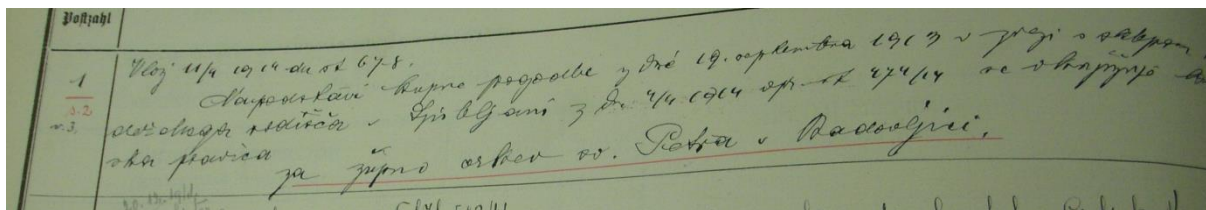 Postzahl
1
Vlož. 11/4 1914 dn. št. 678.
Na podstavi kupne pogodbe z dné 19. septembra 1913 v zvezi s sklepom
deželnega sodišča v Ljubljani z dn 4/4 1914 opr. št 474/14 se vknjižuje
ska pravica
za župno cerkev sv. Petra v Radovljici.